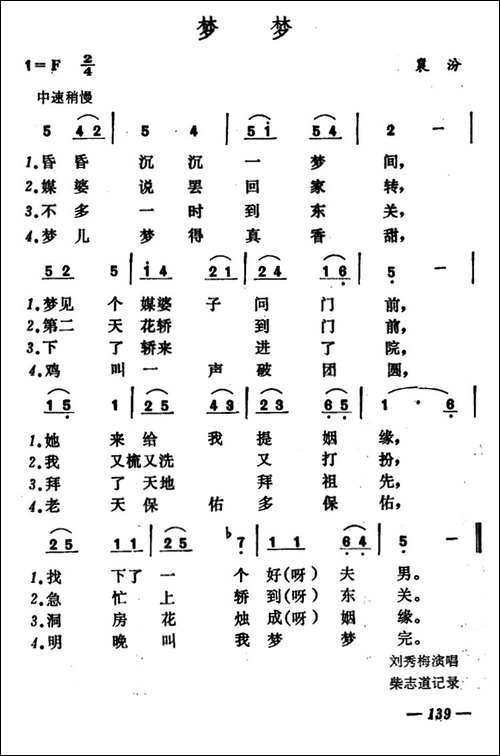 梦 梦
1=F 2/4 襄 汾
中速稍慢
5 42 | 5 4 | 5i 54 | 2 — |
1.昏 昏 沉 沉 一 梦 间，
2.媒 婆 说 罢 回 家 转，
3.不 多 一 时 到 东 关，
4.梦 儿 梦 得 真 香 甜，
52 5 | i4 21 | 24 16 | 5 — |
1.梦见 个 媒婆 子 问 门 前，
2.第二 天 花轿 到 门 前，
3.下 了 轿来 进 了 院，
4.鸡 叫 一 声 破 团 圆，
15 1 | 25 43 | 23 65 | 1 · 6 |
1.她 来 给 我 提 姻 缘，
2.我 又梳又洗 又 打 扮，
3.拜 了 天地 拜 祖 先，
4.老 天 保 佑 多 保 佑，
25 11 | 25 ♭7 | 11 64 | 5 — ‖
1.找 下了 一 个 好(呀) 夫 男。
2.急 忙 上 轿 到(呀) 东 关。
3.洞 房 花 烛 成(呀) 姻 缘。
4.明 晚 叫 我 梦 梦 完。
刘秀梅演唱
柴志道记录
— 139 —